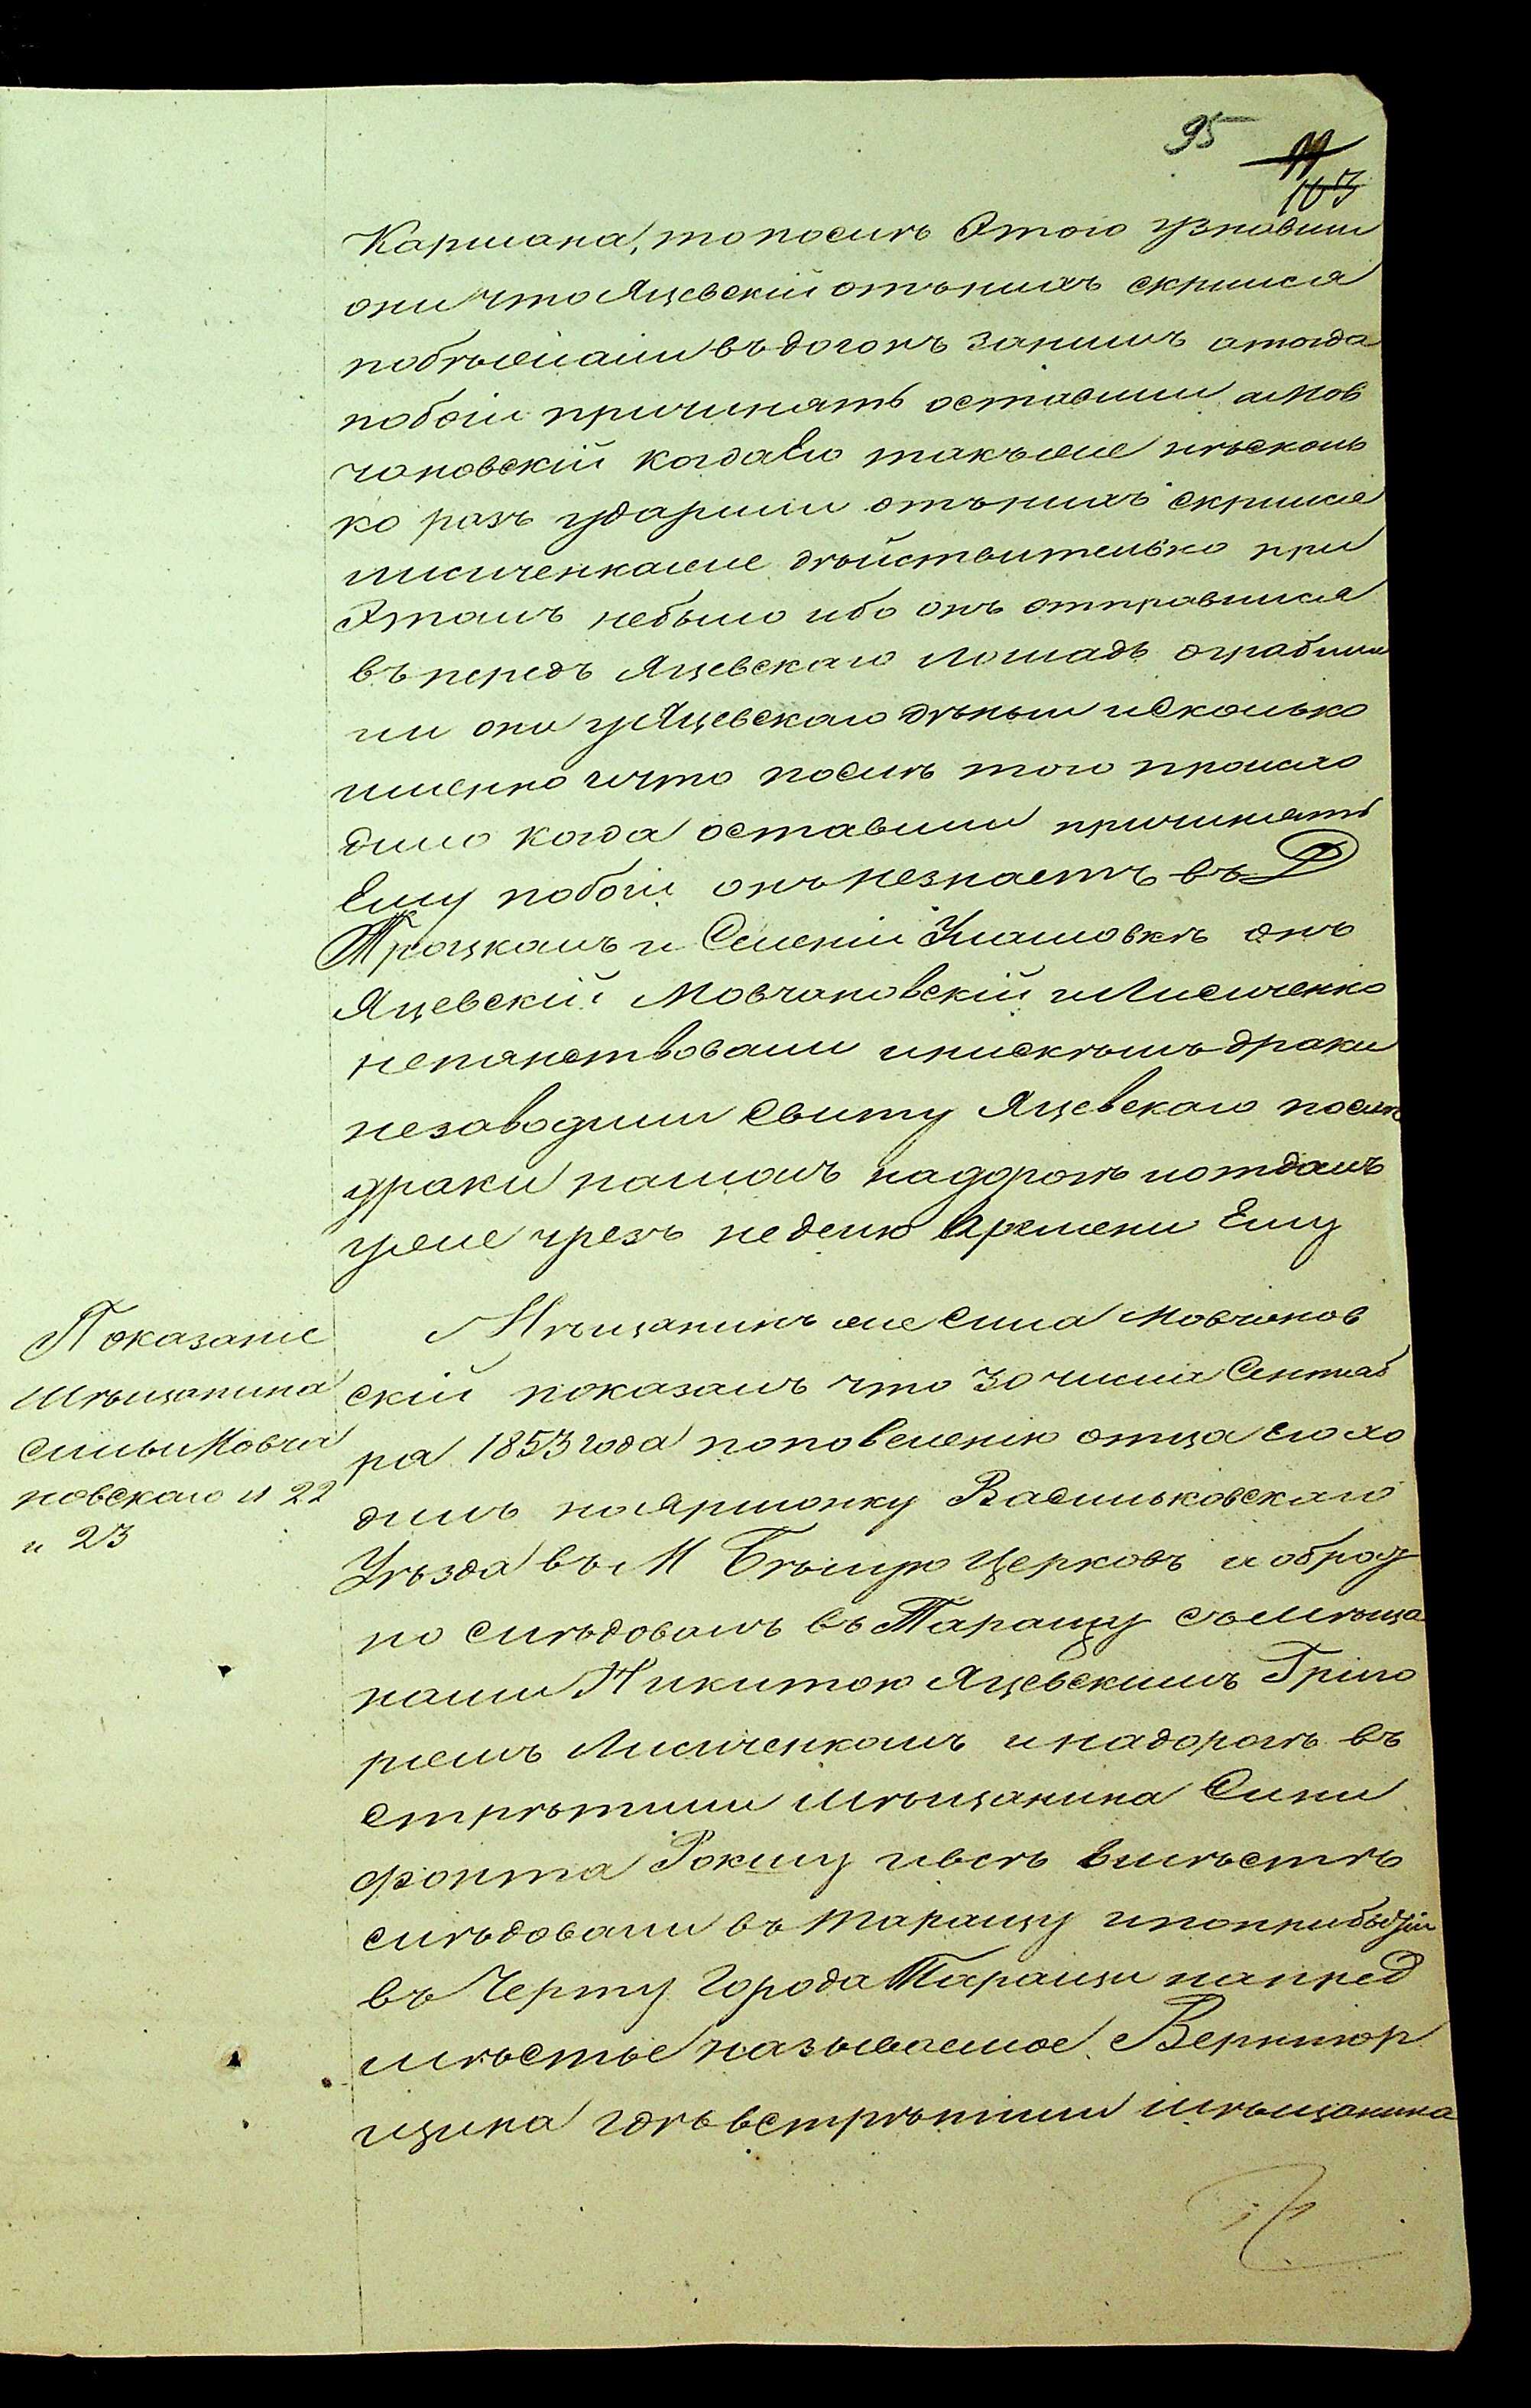 95
103
Кармана, то посилѣ Этого узнавши
они что Яцевскій отъ нихъ скрился
побѣжали въ догонъ занимъ а тогда
побои причинять оставили а Мов
чановскій когда Его также нѣсколь
ко разъ ударили отъ нихъ скрился
Лисиченка же дѣйствительно при
Этомъ небыло ибо онъ отправился
въ передъ Яцевскаго лошадь ограбили
ли они у Яцевскаго деньги и сколько
имено и что после того происхо
дило когда оставили причинять
Ему побои онъ незнаетъ въ Д
Троцкомъ и Селеніи Улашовкѣ онъ
Яцевскій Мовчановскій и Лисиченко
непянствовали и нискемъ драки
незаводили Свиту Яцевскаго послѣ
драки нашолъ на дорогѣ и отдалъ
уже чрезъ неделю времени Ему
Показаніе
Мѣщанина
Силы Мовча
новскаго л 22
и 23
Мѣщанинъ же Сила Мовчанов
скій показалъ что 30 числа Сентяб
ра 1853 года поповеленію отца его хо
дилъ на Ярмонку Васильковскаго
Уѣзда въ М Бѣлую Церковь и оброт
но слѣдовалъ въ Таращу съ Мѣща
нами Никитою Яцевскимъ Григо
ремъ Лисиченкомъ и надорогѣ въ
стрѣтили Мѣщанина Сини
фонта Рокицу и всѣ вмѣстѣ
слѣдовали въ Таращу и поприбытіи
въ Черту Города Таращи напред
мѣстье называемое
щина гдѣ встрѣтили мѣщанина